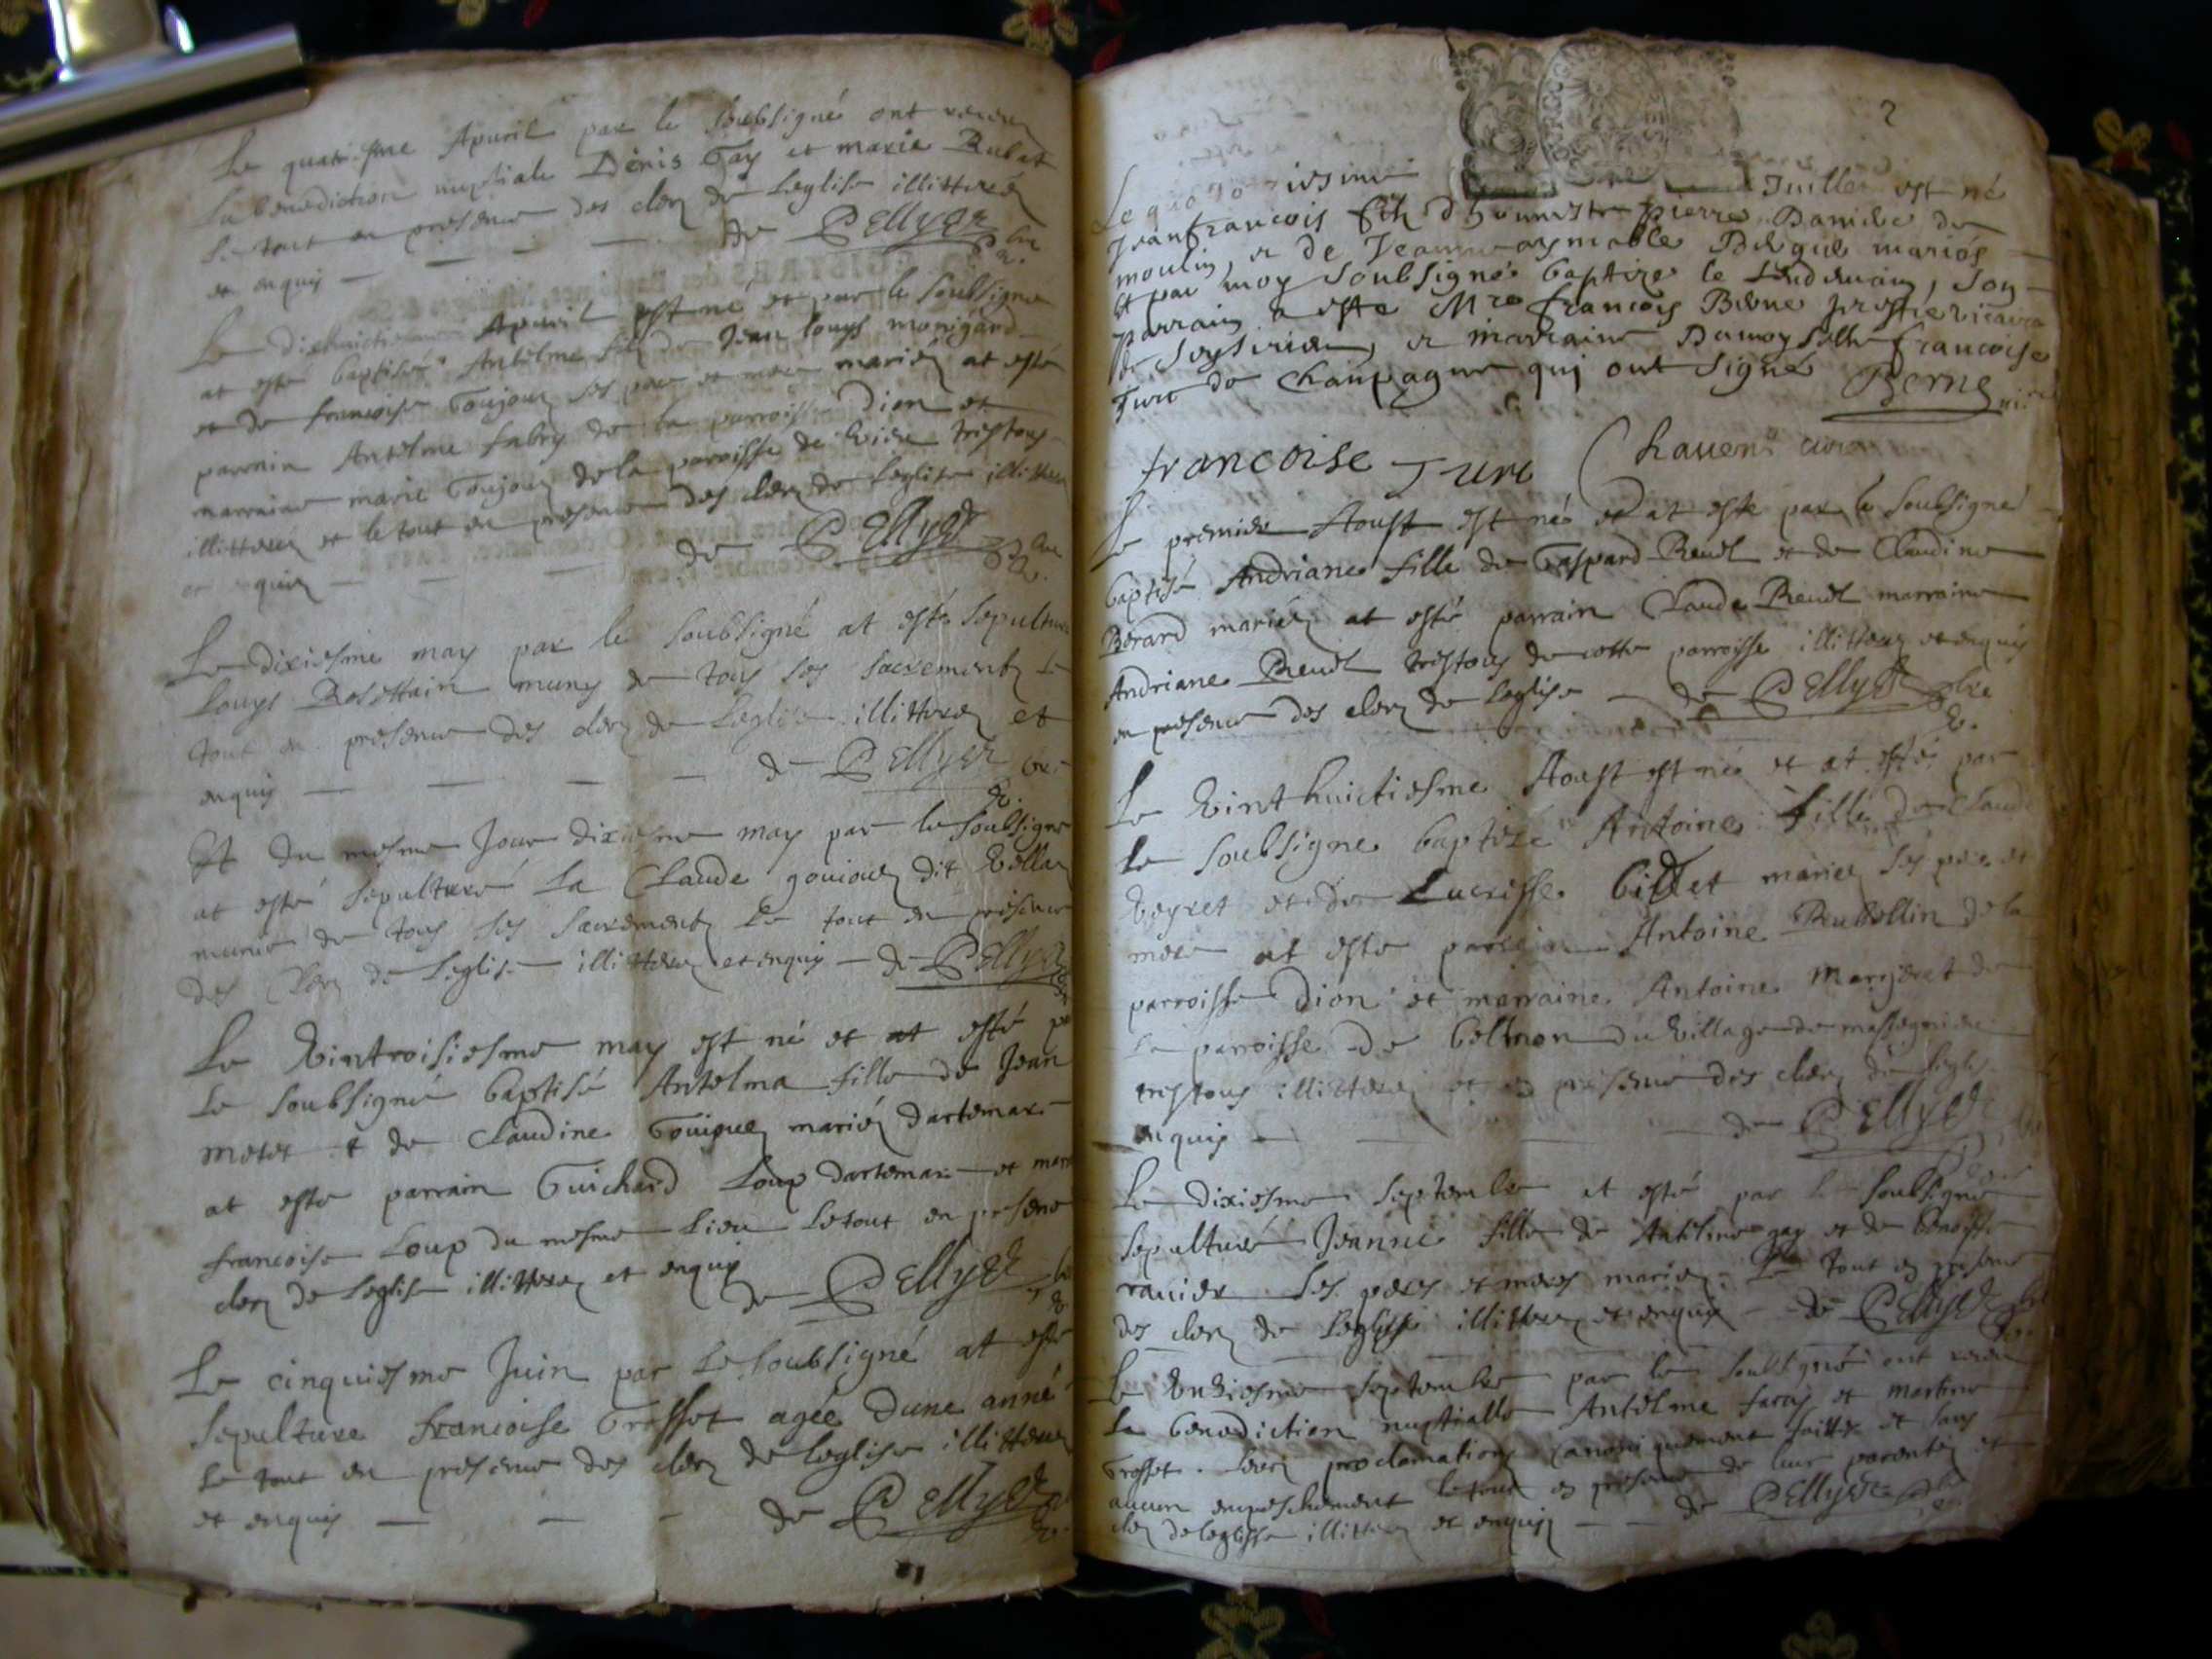 Le quatriesme Apuril par le soubsigné ont receu
La benediction nuptiale Denis Gay et marie Rubat
Le tout en presence des clerz de Leglise illitterez
et enquis — — — de Pellyer
Le dixhuictiesme Apuril est né et par le soubsigne
at esté baptisé Antelme filz de Jean louys monigard
et de francoise Goujouz ses pere et mere mariéz at esté
parrain Antelme fabry de la parroisse Dion et
marraine marie Goujouz de la parroisse de trestous
illitterez et le tout en presence des clerz de Leglise illitterez
et enquis — — — de Pellyer
Le dixiesme may par le soubsigné at esté sepulturé
Louys Rosettain muny de tous ses sacrementz Le
tout en presence des clerz de Leglise illitterez et
enquis — — — de Pellyer
Et du mesme Jour dixiesme may par le soubsigne
at esté sepulturé La Claude goujouz dit
munie de tous ses sacrementz Le tout en presence
des Clerz de Leglise illitterez et enquis — de Pellyer
Le Vintroisiesme may est né et at esté par
Le soubsigné baptisé Antelma fille de Jean
et de Claudine Goujouz mariéz dartemare
at esté parrain Guichard Loup dartemare et marr
francoise Loup du mesme Lieu Le tout en presence
clerz de Leglise illitterez et enquis de Pellyer
Le cinquiesme Juin par Le soubsigné at esté
sepulture francoise Grosset agée Dune anné
Le tout en presence des clerz de Leglise illitterez
et enquis — — — de Pellyer
2
Le Juillet est né
Jeanfrancois filz d'honneste pierre de
moulin, et de Jeanne aymable mariés
et par moy soubsigné baptizé le lendemain, son
parrain a esté Mre francois Berne prestre vicaire
de Seyssirieu, et marraine Damoyselle francoise
Turc de Champagne qui ont signé Berne
francoise Turc Chauen curé
Le premier Aoust est né et at esté par le soubsigné
baptisé Andriane fille de Gaspard Reudt et de Claudine
Berard mariéz at esté parrain Claude Reudt marraine
Andriane Reudt trestous de cette parroisse illitterez et enquis
en presence des clerz de Leglise — de Pellyer
Le Vinthuictiesme Aoust est né et at esté par
le soubsigne baptizé Antoine fille de Claude
et de Lucresse mariez ses pere et
mere at esté parrain Antoine Rubellin de la
parroisse Dion et marraine Antoine Margeret de
La parroisse de belmon du Village de massegnieu
trestous illitterez et en presence des clerz de Leglise
enquis — — — de Pellyer
Le dixiesme septembre at esté par le soubsigné
sepulturé Jeanne fille de Antelme gay et de benoiste
rauier ses peres et meres mariéz Le tout en presence
des clerz de Leglise illitterez et enquis — de Pellyer
Le Unziesme septembre par le soubsigné ont receu
La benediction nuptialle Antelme et martine
Grosset. Leurs proclamations canoniquement faittes et sans
aucun empeschement le tout en presence de leur parentéz et
clerz de leglise illitterez et enquis — — de Pellyer